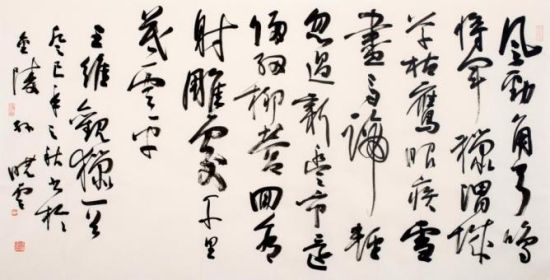 風勁角弓鳴
將軍獵渭城
草枯鷹眼疾雪
盡馬蹄輕
忽過新豐市還
歸細柳營回看
射雕處千里
暮云平
王維觀獵一首
癸巳年之秋書於
金陵孫曉雲